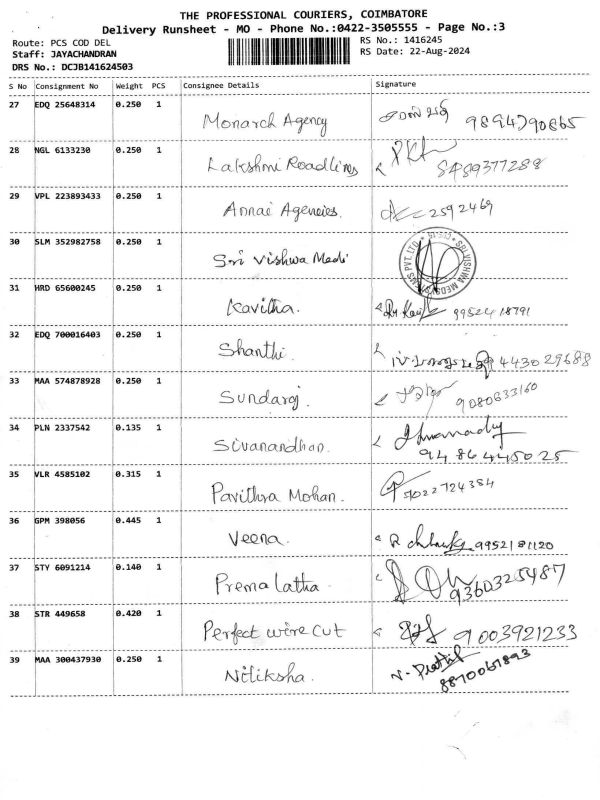 THE PROFESSIONAL COURIERS, COIMBATORE
Delivery Runsheet - MO - Phone No.:0422-3505555 - Page No.:3
Route: PCS COD DEL
RS No.: 1416245
Staff: JAYACHANDRAN
RS Date: 22-Aug-2024
DRS No.: DCJB141624503
S No Consignment No Weight PCS Consignee Details Signature
27 EDQ 25648314 0.250 1
Monarch Agency 9894790865
28 NGL 6133230 0.250 1
Lakshmi Roadlines 8489377288
29 VPL 223893433 0.250 1
Annai Agencies. 2592469
30 SLM 352982758 0.250 1
Sri Vishwa Medi
31 HRD 65600245 0.250 1
Kavitha. 9952418791
32 EDQ 700016403 0.250 1
Shanthi. 443029688
33 MAA 574878928 0.250 1
Sundaraj. 9080633160
34 PLN 2337542 0.135 1
Sivanandhan.
9486445025
35 VLR 4585102 0.315 1
Pavithra Mohan.
36 GPM 398056 0.445 1
Veena. 9952181120
37 STY 6091214 0.140 1
Prema Latha. 9360325487
38 STR 449658 0.420 1
Perfect wire cut 9003921233
39 MAA 300437930 0.250 1
Nitiksha. 8870061893